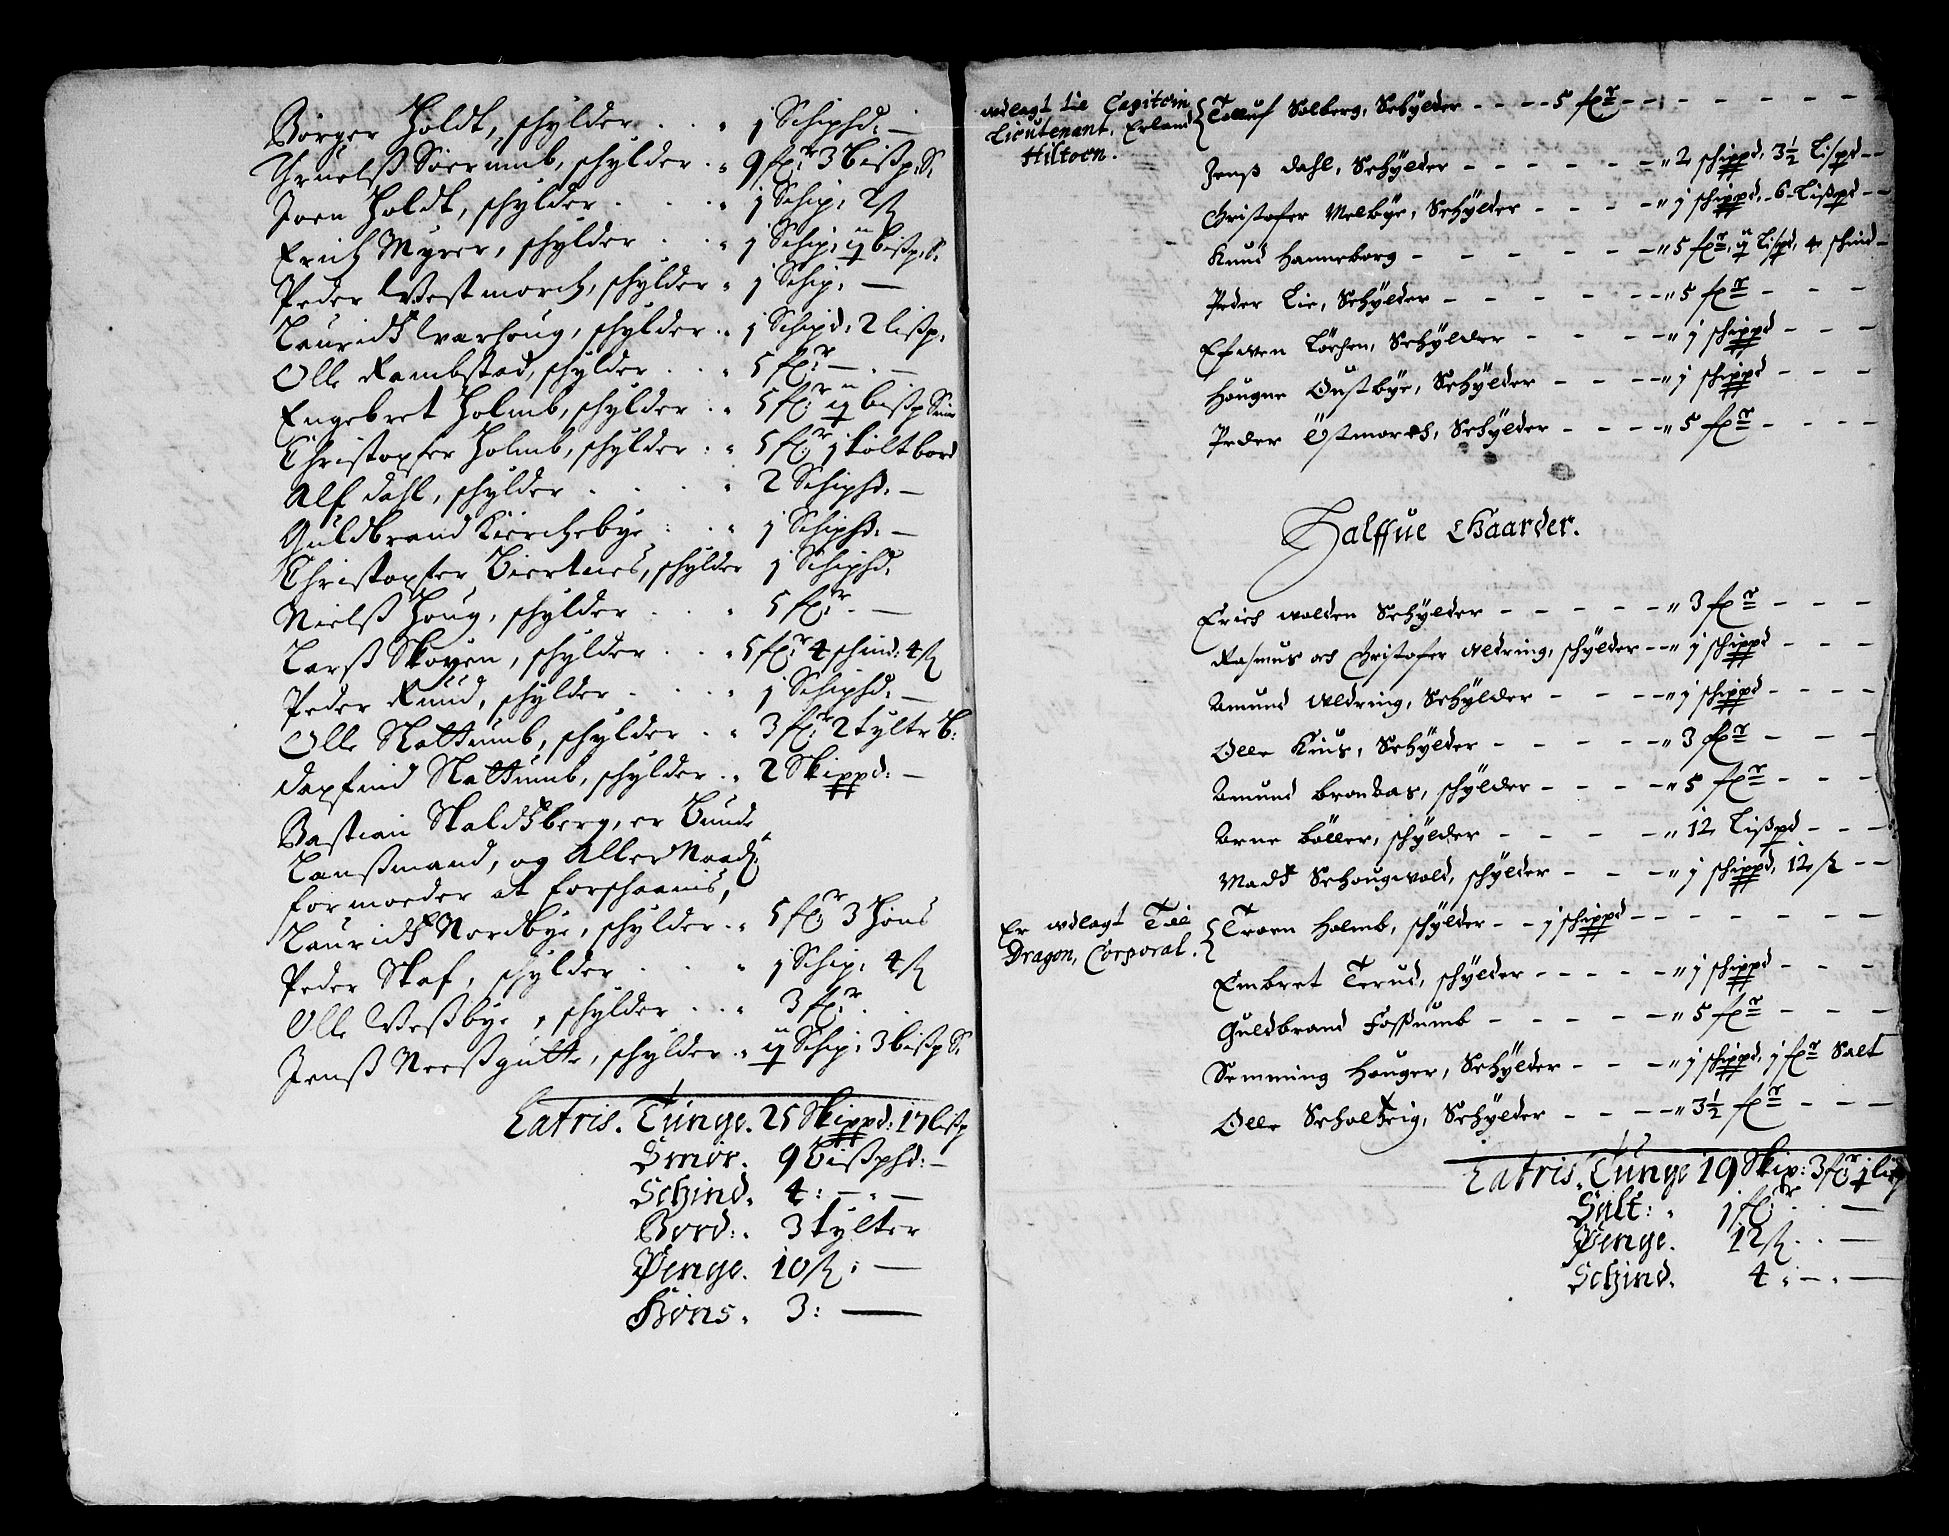 Börger Holdt, schylder . . " j Schipd: —
Thruelß Sörumb, schylder . " 9 fr: 3 bißp: S:
Joen Holdt, schylder . . . " j Schip: 2 ß
Erich Myrer, schylder . . " j Schip: ij bißp: S:
Peder Westmorch, schylder " j Schip: —
Lauridß Warhoug, schylder . " j Schipd: 2 lißp:
Olle Rambstad, schylder . . " 5 fr: — . —
Engebret Holmb, schylder . " 5 fr: ij bißp Smør
Christopfer Holmb, schylder : " 5 fr: j tolt bord
Alf dahl, schylder . . . " 2 Schipd: —
Guldbrand Kierchebye : . " j Schipd: —
Christopfer Biertnes, schylder j Schipd:
Nielß Houg, schylder . . " 5 fr: —
Larß Skoyen, schylder . . " 5 fr: 4 schind: 4 ß
Peder Ruud, schylder . . . " j Schipd: —
Olle Nattumb, schylder . " 3 fr: 2 tylter B:
dapfind Nattumb, schylder . " 2 Skippd: —
Bastian Skaldßberg, er Bunde
Lanßmand, og Aller Naad:
formoeder at forschaanis,
Lauridß Nordbye, schylder . " 5 fr: 3 Höns
Peder Skaf, schylder . . . " j Schip: 4 ß
Olle Weßbye, schylder . . " 3 fr: .
Jenß Neeßgutte, schylder . " ij Schip: 3 bißp S:
Latris. Tunge. 25 Skippd: 17 lißp
Smör. 9 bißphd: —
Schind. 4: — . —
Bord: . 3 tylter
Penge. 10 ß: —
Höns. 3: —
udlagt til Capitein
Lieutenant, Erland
Hiltoen.
Tolluf Solberg, Schÿlder - - - - 5 fr - -
Jenß dahl, Schÿlder - - - - - - " 2 schippd, 3½ Lispd - -
Christofer Melbÿe, Schÿlder - - - - " j schippd, 6 Lißpd - -
Knud Hanneborg - - - - - - " 5 fr, ij Lispd, 4 schind -
Peder Lie, Schÿlder - - - - - - " 5 fr - - - -
Efwen Lörchen, Schÿlder - - - - " j schippd - - -
Hougne Oustbÿe, Schÿlder - - - - " j schippd - - -
Peder Östmorch, Schÿlder - - - - " 5 fr - - - -
Halffue Gaarder.
Erich wolden Schÿlder - - - - - " 3 fr - - -
Rasmus och Christofer Aldring, schÿlder - - " j schippd - - -
Amund Aldring, Schÿlder - - - - " j schippd - - - -
Olle Kius, Schÿlder - - - - - " 3 fr - - -
Amund brondas, schÿlder - - - - " 5 fr - - -
Arne böller, schÿlder - - - - - " 12 Lißpd - - -
Madß Schougwold, schÿlder - - - " j schippd, 12 ß - -
Er udlagt Til
Dragon, Corporal.
Troen holmb, schÿlder - - j schippd - - - - - - -
Embret Terud, schÿlder - - - - " j schippd - - -
Guldbrand Fossumb - - - - - " 5 fr - - -
Semming Houger, Schÿlder - - - " j schippd, j fr Salt
Olle Scholtzrig, Schÿlder - - - - " 3½ fr - - -
Latris. Tunge 19 Skip: 3 fr j lißp
Salt: . j fr: . . —
Penge. 12 ß . . —
Schind. 4 : — . —